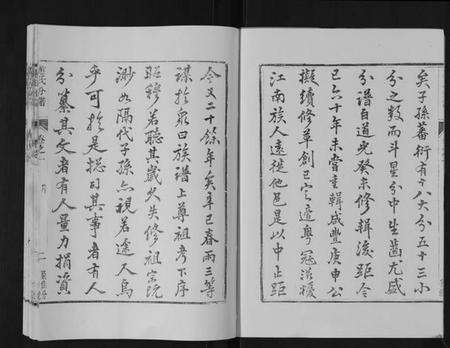 矣子孫蕃衍有十八大分五十三小
分之數而斗星分中生齒尤盛
分譜自道光癸未修輯後距今
已六十年未嘗重輯咸豐庚申公
擬續修草創已定遭粵寇滋擾
江南族人遠徙他邑是以中止距
今又二十餘年矣辛巳春兩三等
謀於衆曰族譜上尊祖考下序
昭穆若聽其歲久失修祖宗既
渺如隔代子孫亦視若途人烏
乎可於是總司其事者有人
分纂其文者有人量力捐資